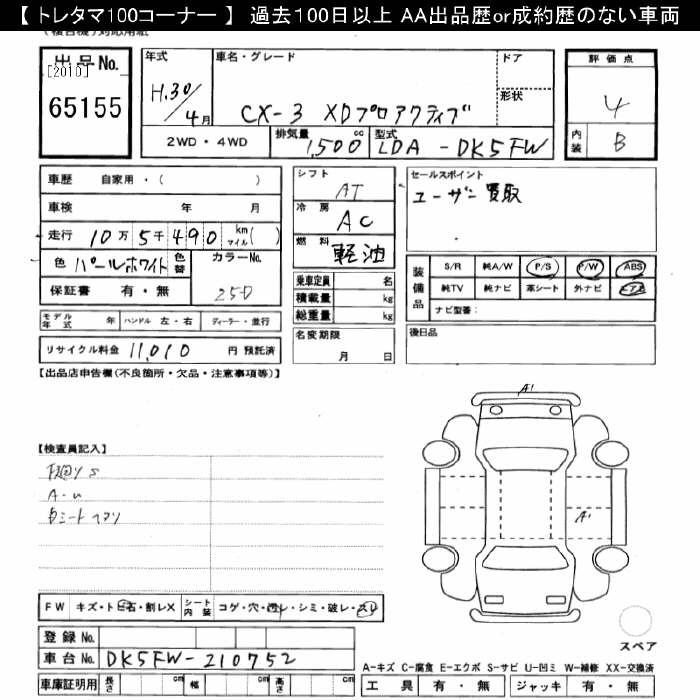 【 トレタマ100コーナー 】 過去100日以上 AA出品歴or成約歴のない車両
出品No.
[2010]
65155
年式
H.30/4月
車名・グレード
CX-3 XDプロアクティブ
ドア
形状
評価点
4
内装
B
2WD・4WD
排気量 1,500 cc
型式 LDA-DK5FW
車歴 自家用・( )
車検 年 月
走行 10万5千490 km マイル( )
色 パールホワイト 色替
カラーNo.
25D
保証書 有・無
シフト
AT
冷房
AC
燃料
軽油
セールスポイント
ユーザー買取
乗車定員 名
積載量 kg
総重量 kg
装備品
S/R 純A/W P/S P/W ABS
純TV 純ナビ 革シート 外ナビ エアB
ナビ型番:
モデル年式 年 ハンドル 左・右 ディーラー・並行
名変期限
月 日
後日品
リサイクル料金 11,010 円 預託済
【出品店申告欄(不良箇所・欠品・注意事項等)】
A1
【検査員記入】
A-u
A1
FW キズ・ト石・割レX シート内装 コゲ・穴・透レ・シミ・破レ・スレ
登録No.
車台No. DK5FW-210752
スペア
車庫証明用 長さ cm 幅 cm 高さ cm
A-キズ C-腐食 E-エクボ S-サビ U-凹ミ W-補修 XX-交換済
工具 有・無 ジャッキ 有・無